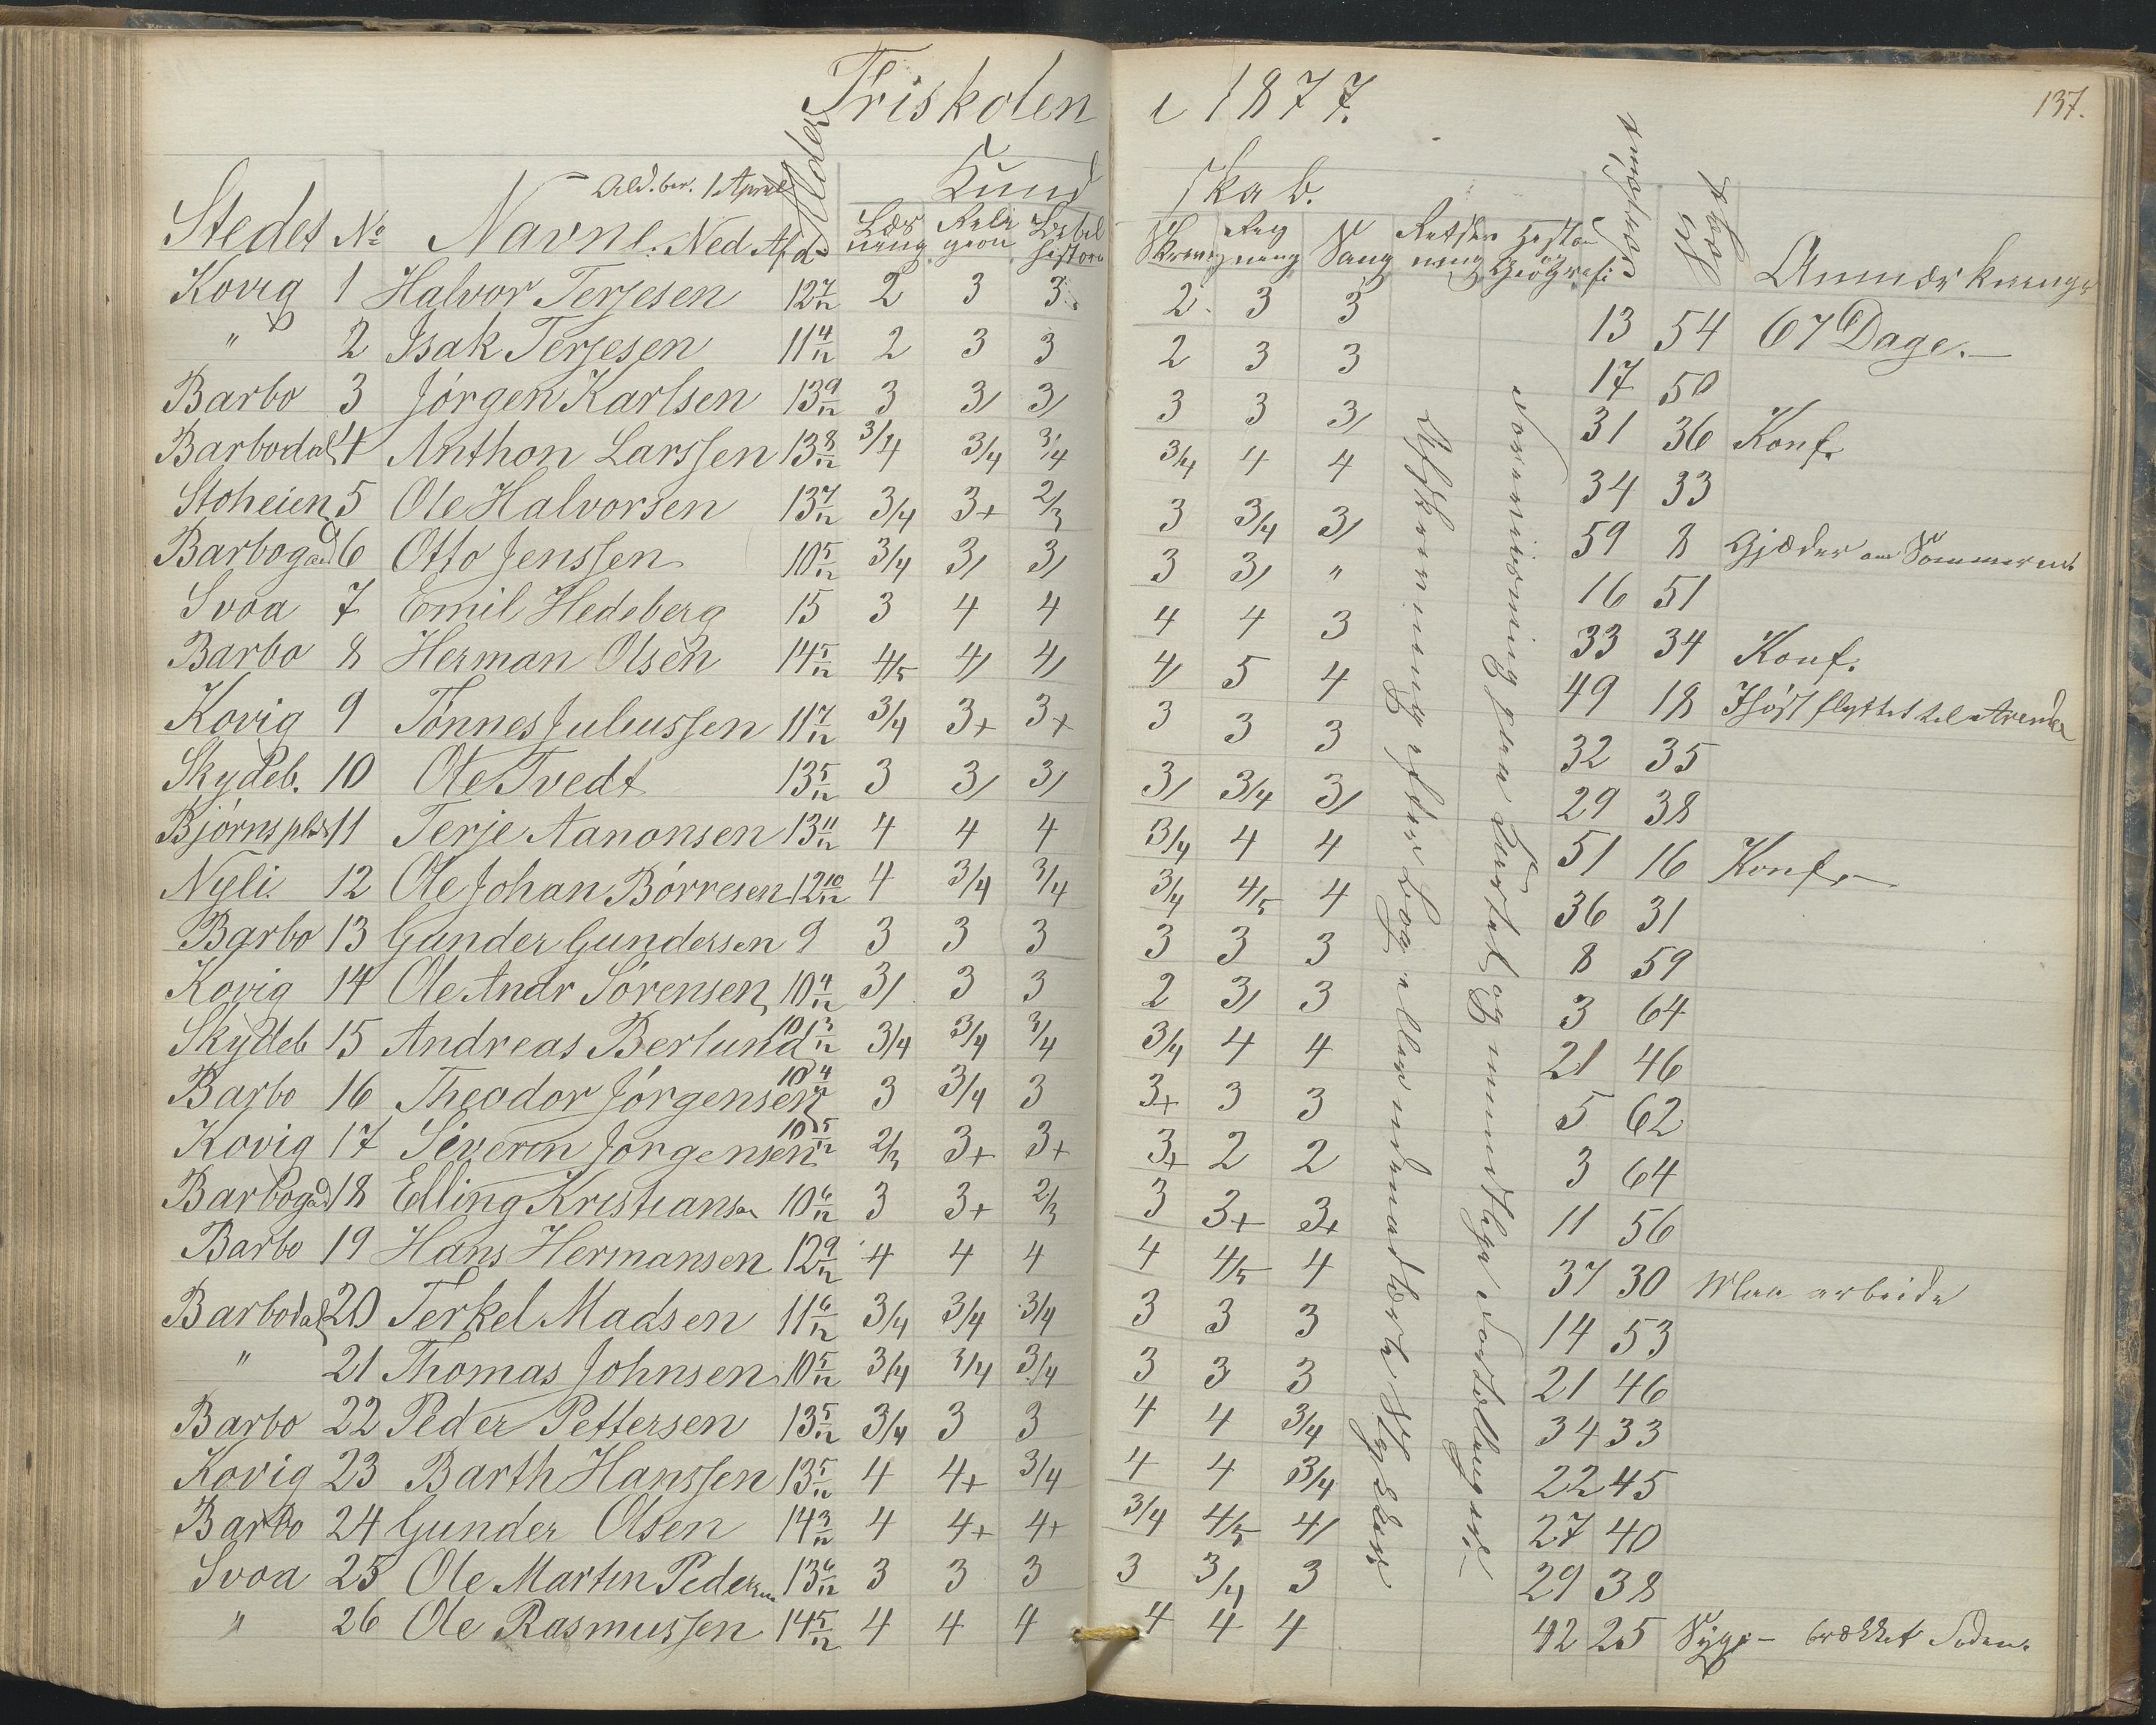 Friskolen i 1877.
137.
Stedet No Navne. Ned Afd. Ald. ber. 1 April Alder Kund skab.
Læs ning. Reli gion Bibel historie Skrivnig Reg ning Sang Retskr ning Histori Geografi Forsømt Sögt Skole Anmærkninger
Kovig 1 Halvor Terjesen 12 7/12 2 3 3. 2. 3 3 13 54 67 Dage.—
" 2 Isak Terjesen 11 4/12 2 3 3 2 3 3 17 50
Barbo 3 Jórgen Karlsen 13 9/12 3 3/ 3/ 3 3 3/ 31 36 Konf.
Barbodal 4 Anthon Larssen 13 8/12 3/4 3/4 3/4 3/4 4 4 34 33
Stoheien 5 Ole Halvorsen 13 7/12 3/4 3+ 2/3 3 3/4 3/ 59 8 Gjæder om Sommeren
Barbogaard 6 Otto Jenssen 10 5/12 3/4 3/ 3/ 3 3/ " 16 51
Svoa 7 Emil Hedeberg 15 3 4 4 4 4 3 33 34 Konf.
Barbo 8 Herman Olsen 14 5/12 4/5 4/ 4/ 4/ 5 4 49 18 Höst flyttet til Arendal
Kovig 9 Tónnes Juliussen 11 7/12 3/4 3+ 3+ 3 3 3 32 35
Skydeb. 10 Ole Tvedt 13 5/12 3 3/ 3/ 3/ 3/4 3/ 29 38
Bjórnsplds 11 Terje Aanonsen 13 11/12 4 4 4 3/4 4 4 51 16 Konf.—
Nyli 12 Ole Johan Bórresen 12 10/12 4 3/4 3/4 3/4 4/5 4 36 31
Barbo 13 Gunder Gundersen 9 3 3 3 3 3 3 8 59
Kovig 14 Ole Andr Sórensen 10 4/12 3/ 3 3 2 3/ 3 3 64
Skydeb 15 Andreas Berlund 10 3/12 3/4 3/4 3/4 3/4 4 4 21 46
Barbo 16 Theodor Jórgensen 10 4/12 3 3/4 3 3+ 3 3 5 62
Kovig 17 Severin Jórgensen 10 5/12 2/3 3+ 3+ 3+ 2 2 3 64
Barbogrd 18 Edling Kristiansen 10 6/12 3 3+ 2/3 3 3+ 3+ 11 56
Barbo 19 Hans Hermansen 12 9/12 4 4 4 4 4/5 4 37 30 Maa arbeide
Barbodal 20 Terkel Madsen 11 6/12 3/4 3/4 3/4 3 3 3 14 53
" 21 Thomas Johnsen 10 5/12 3/4 3/4 3/4 3 3 3 21 46
Barbo 22 Peder Pettersen 13 5/12 3/4 3 3 4 4 3/4 34 33
Kovig 23 Barth Hanssen 13 5/12 4 4+ 3/4 4 4 3/4 22 45
Barbo 24 Gunder Olsen 14 3/12 4 4+ 4+ 3/4 4/5 4/ 27 40
Svoa 25 Ole Martin Pedersen 13 6/12 3 3 3 3 3/4 3 29 38
" 26 Ole Rasmussen 14 5/12 4 4 4 4 4 4 42 25 Syg— brækket Foden.
Afskrivning efter Bog eller udenadlærte Stykker.
Foreviisning paa Kartet og mundtlige Fortællinger.—